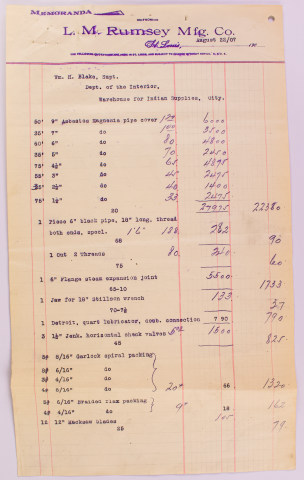 MEMORANDA
L. M. Rumsey Mfg. Co.
St. Louis, August 22/07 190
Wm. H. Blake, Supt.
Dept. of the Interior,
Warehouse for Indian Supplies, City.
50' 9" Asbestos Magnesia pipe cover 120 6000
35' 7" do 100 3500
60' 6" do 80 4800
35' 5" do 70 2450
75' 4½" do 65 4875
55' 3" do 45 2475
35' 2½" do 40 1400
75' 1½" do 33 2475
20 27975 22380
1 Piece 6" black pipe, 18" long, thread
both ends, spec. 1'6" 188 282
68 90
1 Cut 2 Threads 80
75 60
1 6" Flange steam expansion joint 5500
68-10 1733
1 Jaw for 18" Stillson wrench 133
70-7½ 37
1 Detroit, quart lubricator, comb. connection 7 90 790
3 1½" Jenk. horizontal check valves 1500
45 825
5# 5/16" Garlock spiral packing
5# 5/16" do
5# 4/16" do
5# 6/16" do 20# 66 1320
5# 5/16" Braided flax packing
4# 4/16" do 9# 18 162
12 12" Hacksaw blades 105
25 79